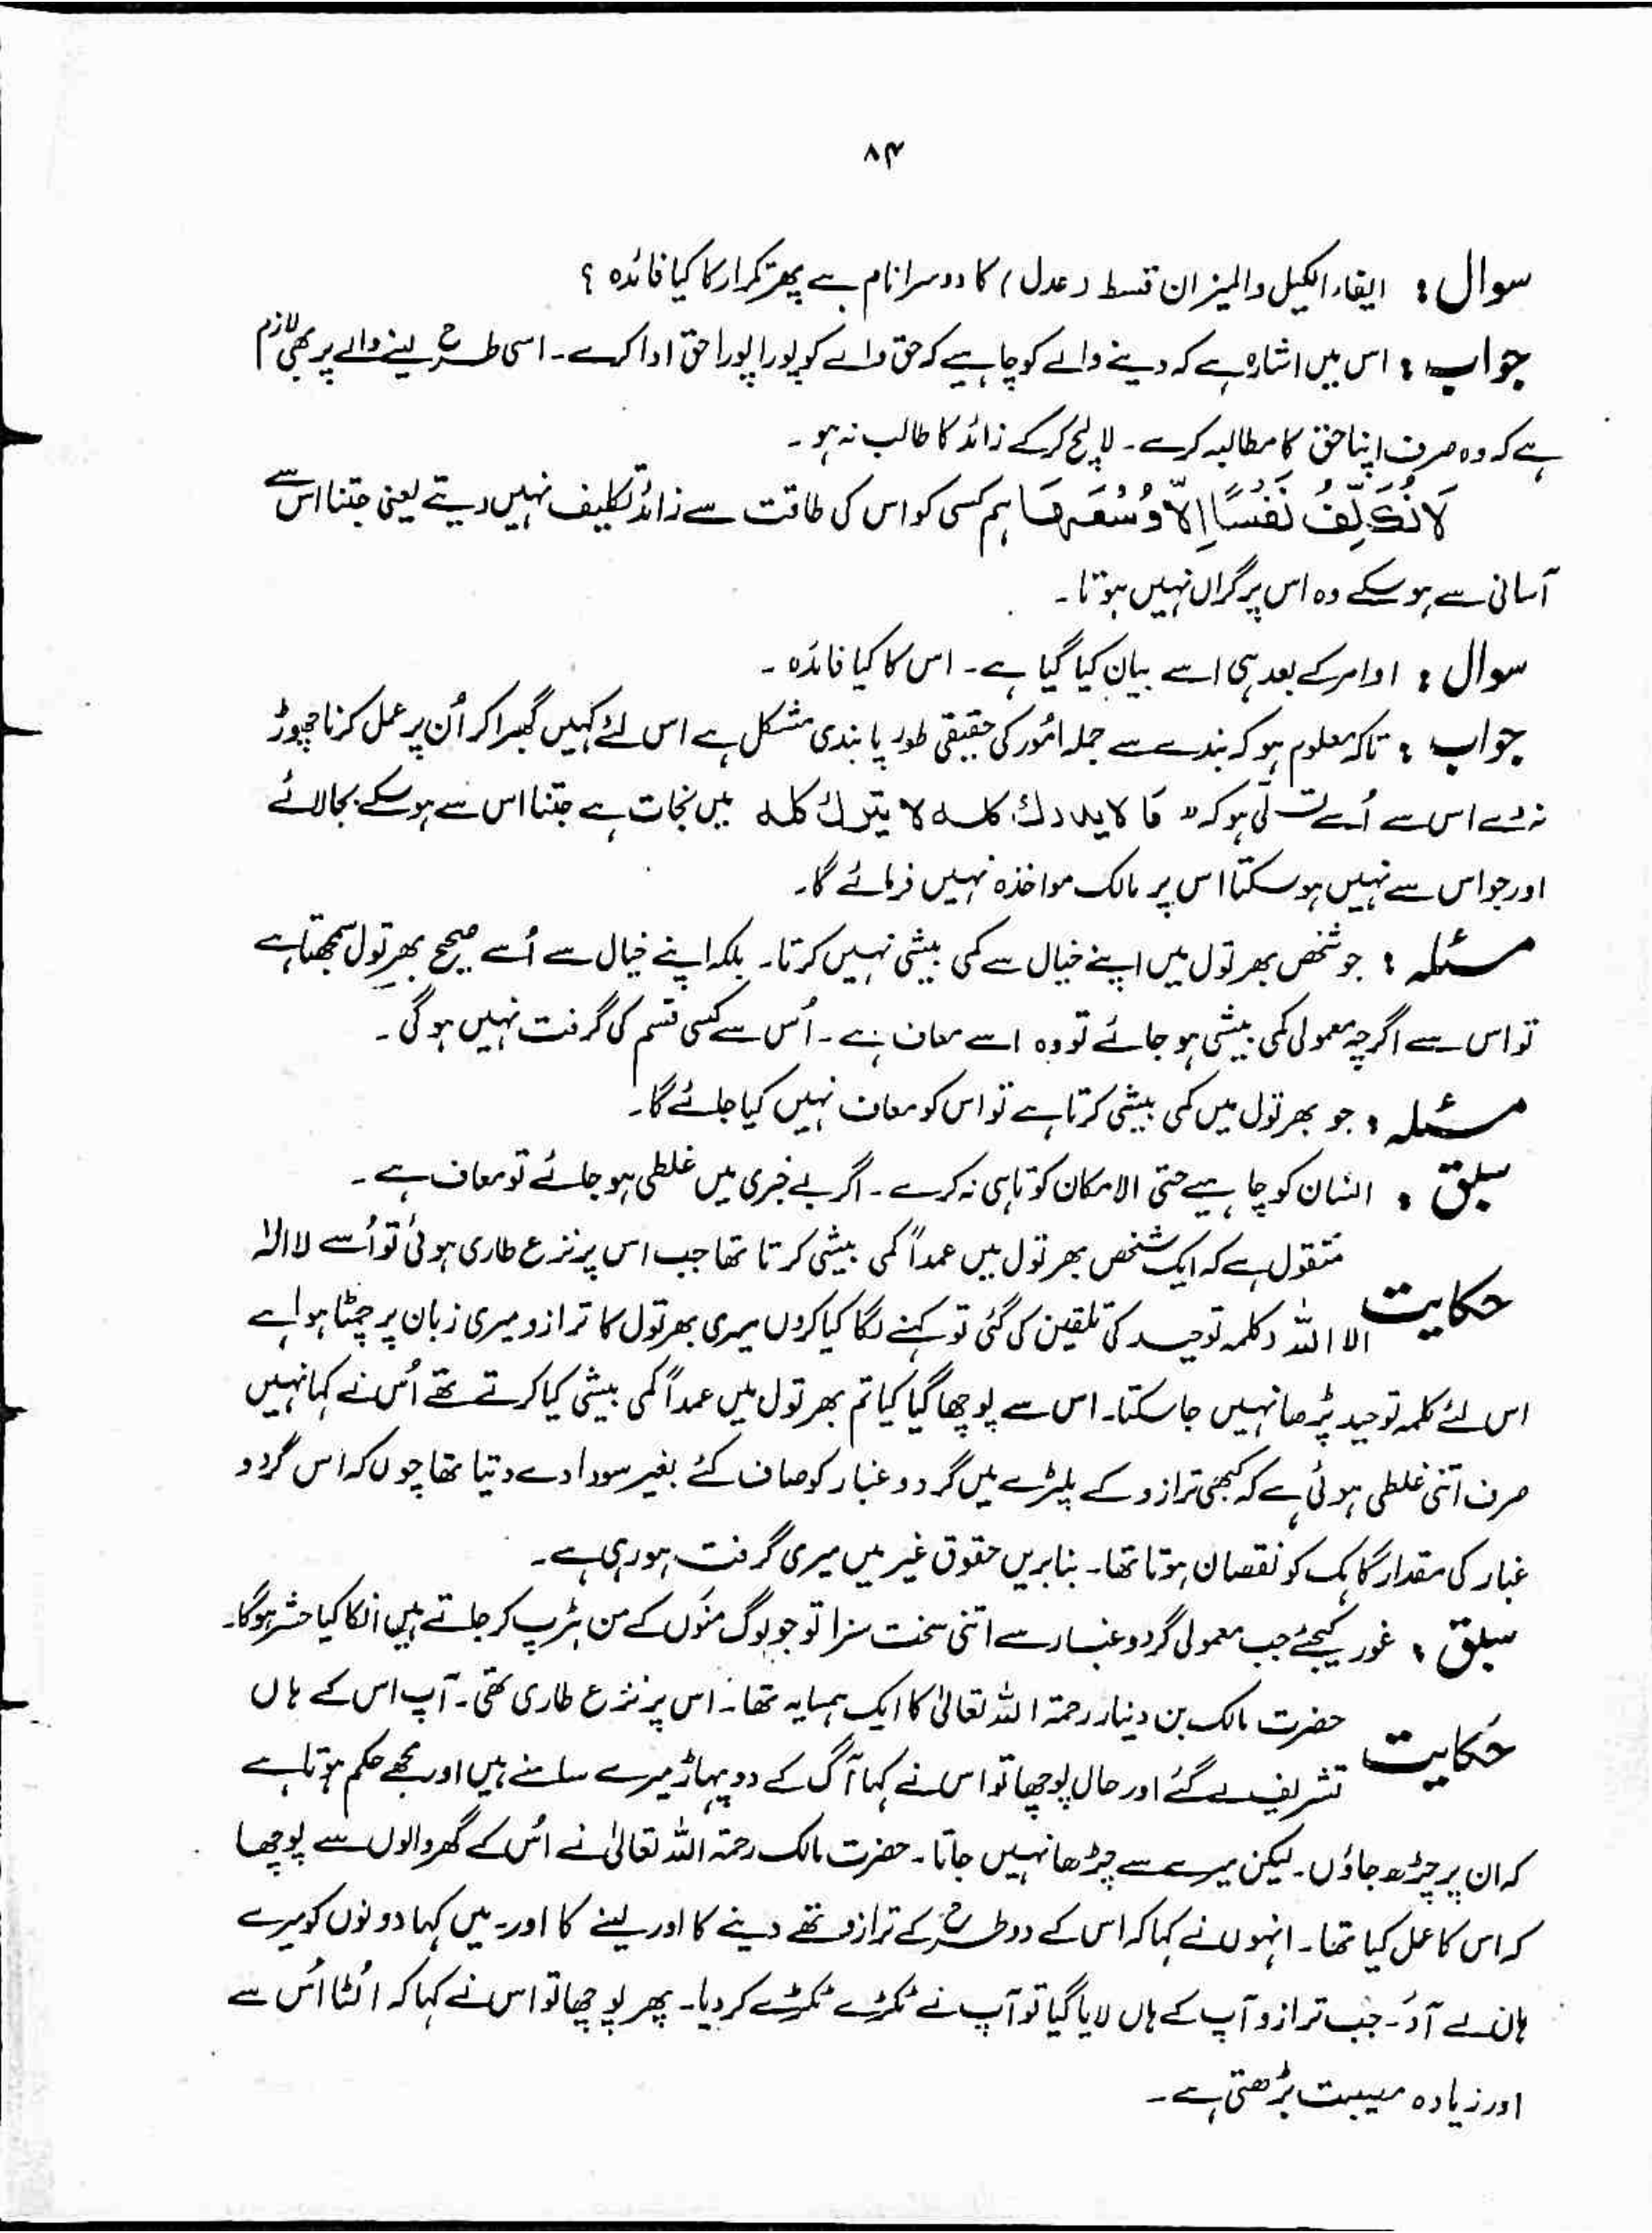 ۸۴
سوال : ایفاء الکیل والمیزان قسط (عدل) کا دوسرا نام ہے پھر تکرار کا کیا فائدہ ؟
جواب : اس میں اشارہ ہے کہ دینے والے کو چاہیے کہ حق والے کو پورا پورا حق ادا کرے۔ اسی طرح لینے والے پر بھی لازم
ہے کہ وہ صرف اپنا حق کا مطالبہ کرے۔ لالچ کر کے زائد کا طالب نہ ہو۔
لَا نُكَلِّفُ نَفْسًا اِلَّا وُسْعَهَا ہم کسی کو اس کی طاقت سے زائد تکلیف نہیں دیتے یعنی جتنا اس سے
آسانی سے ہو سکے وہ اس پر گراں نہیں ہوتا۔
سوال : اوامر کے بعد ہی اسے بیان کیا گیا ہے۔ اس کا کیا فائدہ ۔
جواب : تاکہ معلوم ہو کہ بندے سے جملہ امُور کی حقیقی طور پابندی مشکل ہے اس لئے کہیں گھبرا کر اُن پر عمل کرنا چھوڑ
نہ دے اس سے اُسے تسلّی ہو کہ " مَا لا یدرك كله لا یترك كله میں نجات ہے جتنا اس سے ہو سکے بجا لائے
اور جو اس سے نہیں ہو سکتا اس پر مالک مواخذہ نہیں فرمائے گا۔
مسئلہ : جو شخص بھر تول میں اپنے خیال سے کمی بیشی نہیں کرتا۔ بلکہ اپنے خیال سے اُسے صحیح بھر تول سمجھتا ہے
تو اس سے اگرچہ معمولی کمی بیشی ہو جائے تو وہ اسے معاف ہے۔ اُس سے کسی قسم کی گرفت نہیں ہو گی۔
مسئلہ : جو بھر تول میں کمی بیشی کرتا ہے تو اس کو معاف نہیں کیا جائے گا۔
سبق : انسان کو چاہیے حتی الامکان کوتاہی نہ کرے۔ اگر بے خبری میں غلطی ہو جائے تو معاف ہے۔
منقول ہے کہ ایک شخص بھر تول میں عمداً کمی بیشی کرتا تھا جب اس پر نزع طاری ہوئی تو اُسے لا الٰہ
حکایت
الا اللہ (کلمہ توحید کی تلقین کی گئی تو کہنے لگا کیا کروں میری بھر تول کا ترازو میری زبان پر چمٹا ہوا ہے
اس لئے کلمہ توحید پڑھا نہیں جا سکتا۔ اس سے پوچھا گیا کیا تم بھر تول میں عمداً کمی بیشی کیا کرتے تھے اُس نے کہا نہیں
صرف اتنی غلطی ہوئی ہے کہ کبھی ترازو کے پلڑے میں گرد و غبار کو صاف کئے بغیر سودا دے دیتا تھا چوں کہ اس گرد و
غبار کی مقدار گاہک کو نقصان ہوتا تھا۔ بنا بریں حقوق غیر میں میری گرفت ہو رہی ہے۔
سبق : غور کیجئے جب معمولی گرد و غبار سے اتنی سخت سزا تو جو لوگ منوں کے من ہڑپ کر جاتے ہیں انکا کیا حشر ہوگا۔
حضرت مالک بن دینار رحمۃ اللہ تعالیٰ کا ایک ہمسایہ تھا۔ اس پر نزع طاری تھی۔ آپ اس کے ہاں
حکایت
تشریف لے گئے اور حال پوچھا تو اس نے کہا آگ کے دو پہاڑ میرے سامنے ہیں اور مجھے حکم ہوتا ہے
کہ ان پر چڑھ جاؤں۔ لیکن میرے سے چڑھا نہیں جاتا۔ حضرت مالک رحمۃ اللہ تعالیٰ نے اُس کے گھر والوں سے پوچھا
کہ اس کا عمل کیا تھا۔ انہوں نے کہا کہ اس کے دو طرح کے ترازو تھے دینے کا اور لینے کا اور۔ میں کہا دونوں کو میرے
ہاں لے آؤ۔ جب ترازو آپ کے ہاں لایا گیا تو آپ نے ٹکڑے ٹکڑے کر دیا۔ پھر پوچھا تو اس نے کہا کہ اُلٹا اُس سے
اور زیادہ مصیبت بڑھتی ہے۔